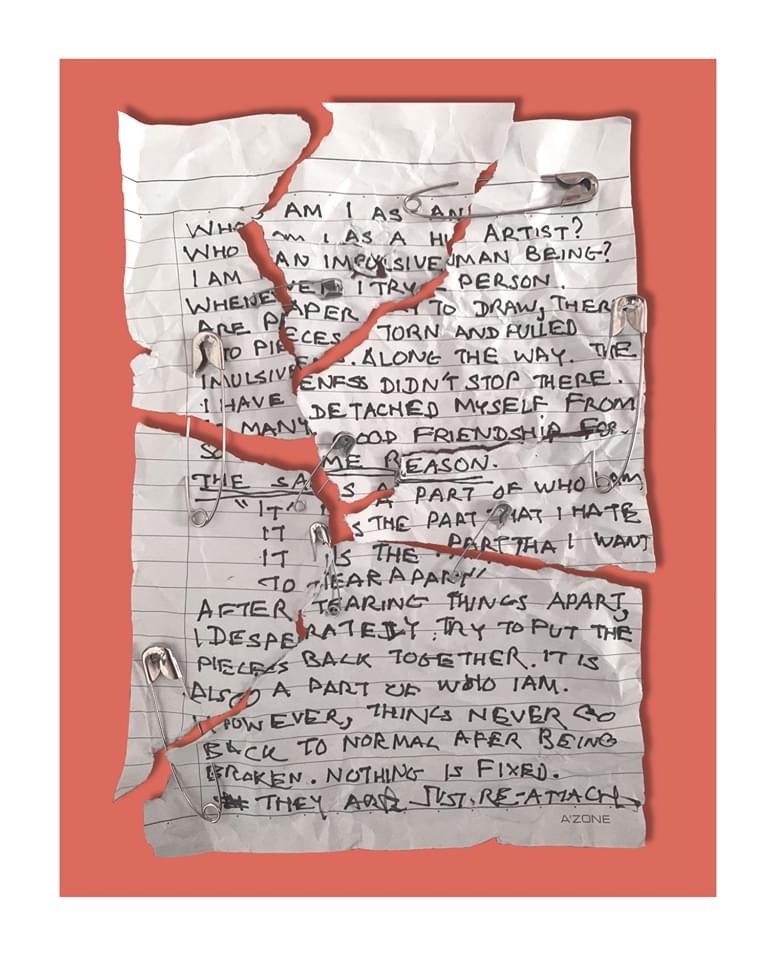 WHO AM I AS AN ARTIST?
WHO AM I AS A HUMAN BEING?
I AM AN IMPULSIVE PERSON.
WHENEVER I TRY TO DRAW, THERE
ARE PAPER TORN AND PULLED
TO PIECES. ALONG THE WAY. THE
IMULSIVENESS DIDN'T STOP THERE.
I HAVE DETACHED MYSELF FROM
SO MANY GOOD FRIENDSHIP FOR
THE SAME REASON.
"IT IS A PART OF WHO I AM
IT IS THE PART THAT I HATE
IT IS THE PART THA I WANT
TO TEAR APART"
AFTER TEARING THINGS APART,
I DESPERATELY TRY TO PUT THE
PIECES BACK TOGETHER. IT IS
ALSO A PART OF WHO I AM.
HOWEVER, THINGS NEVER GO
BACK TO NORMAL AFER BEING
BROKEN. NOTHING IS FIXED.
THEY ARE JUST RE-ATTACH
A'ZONE